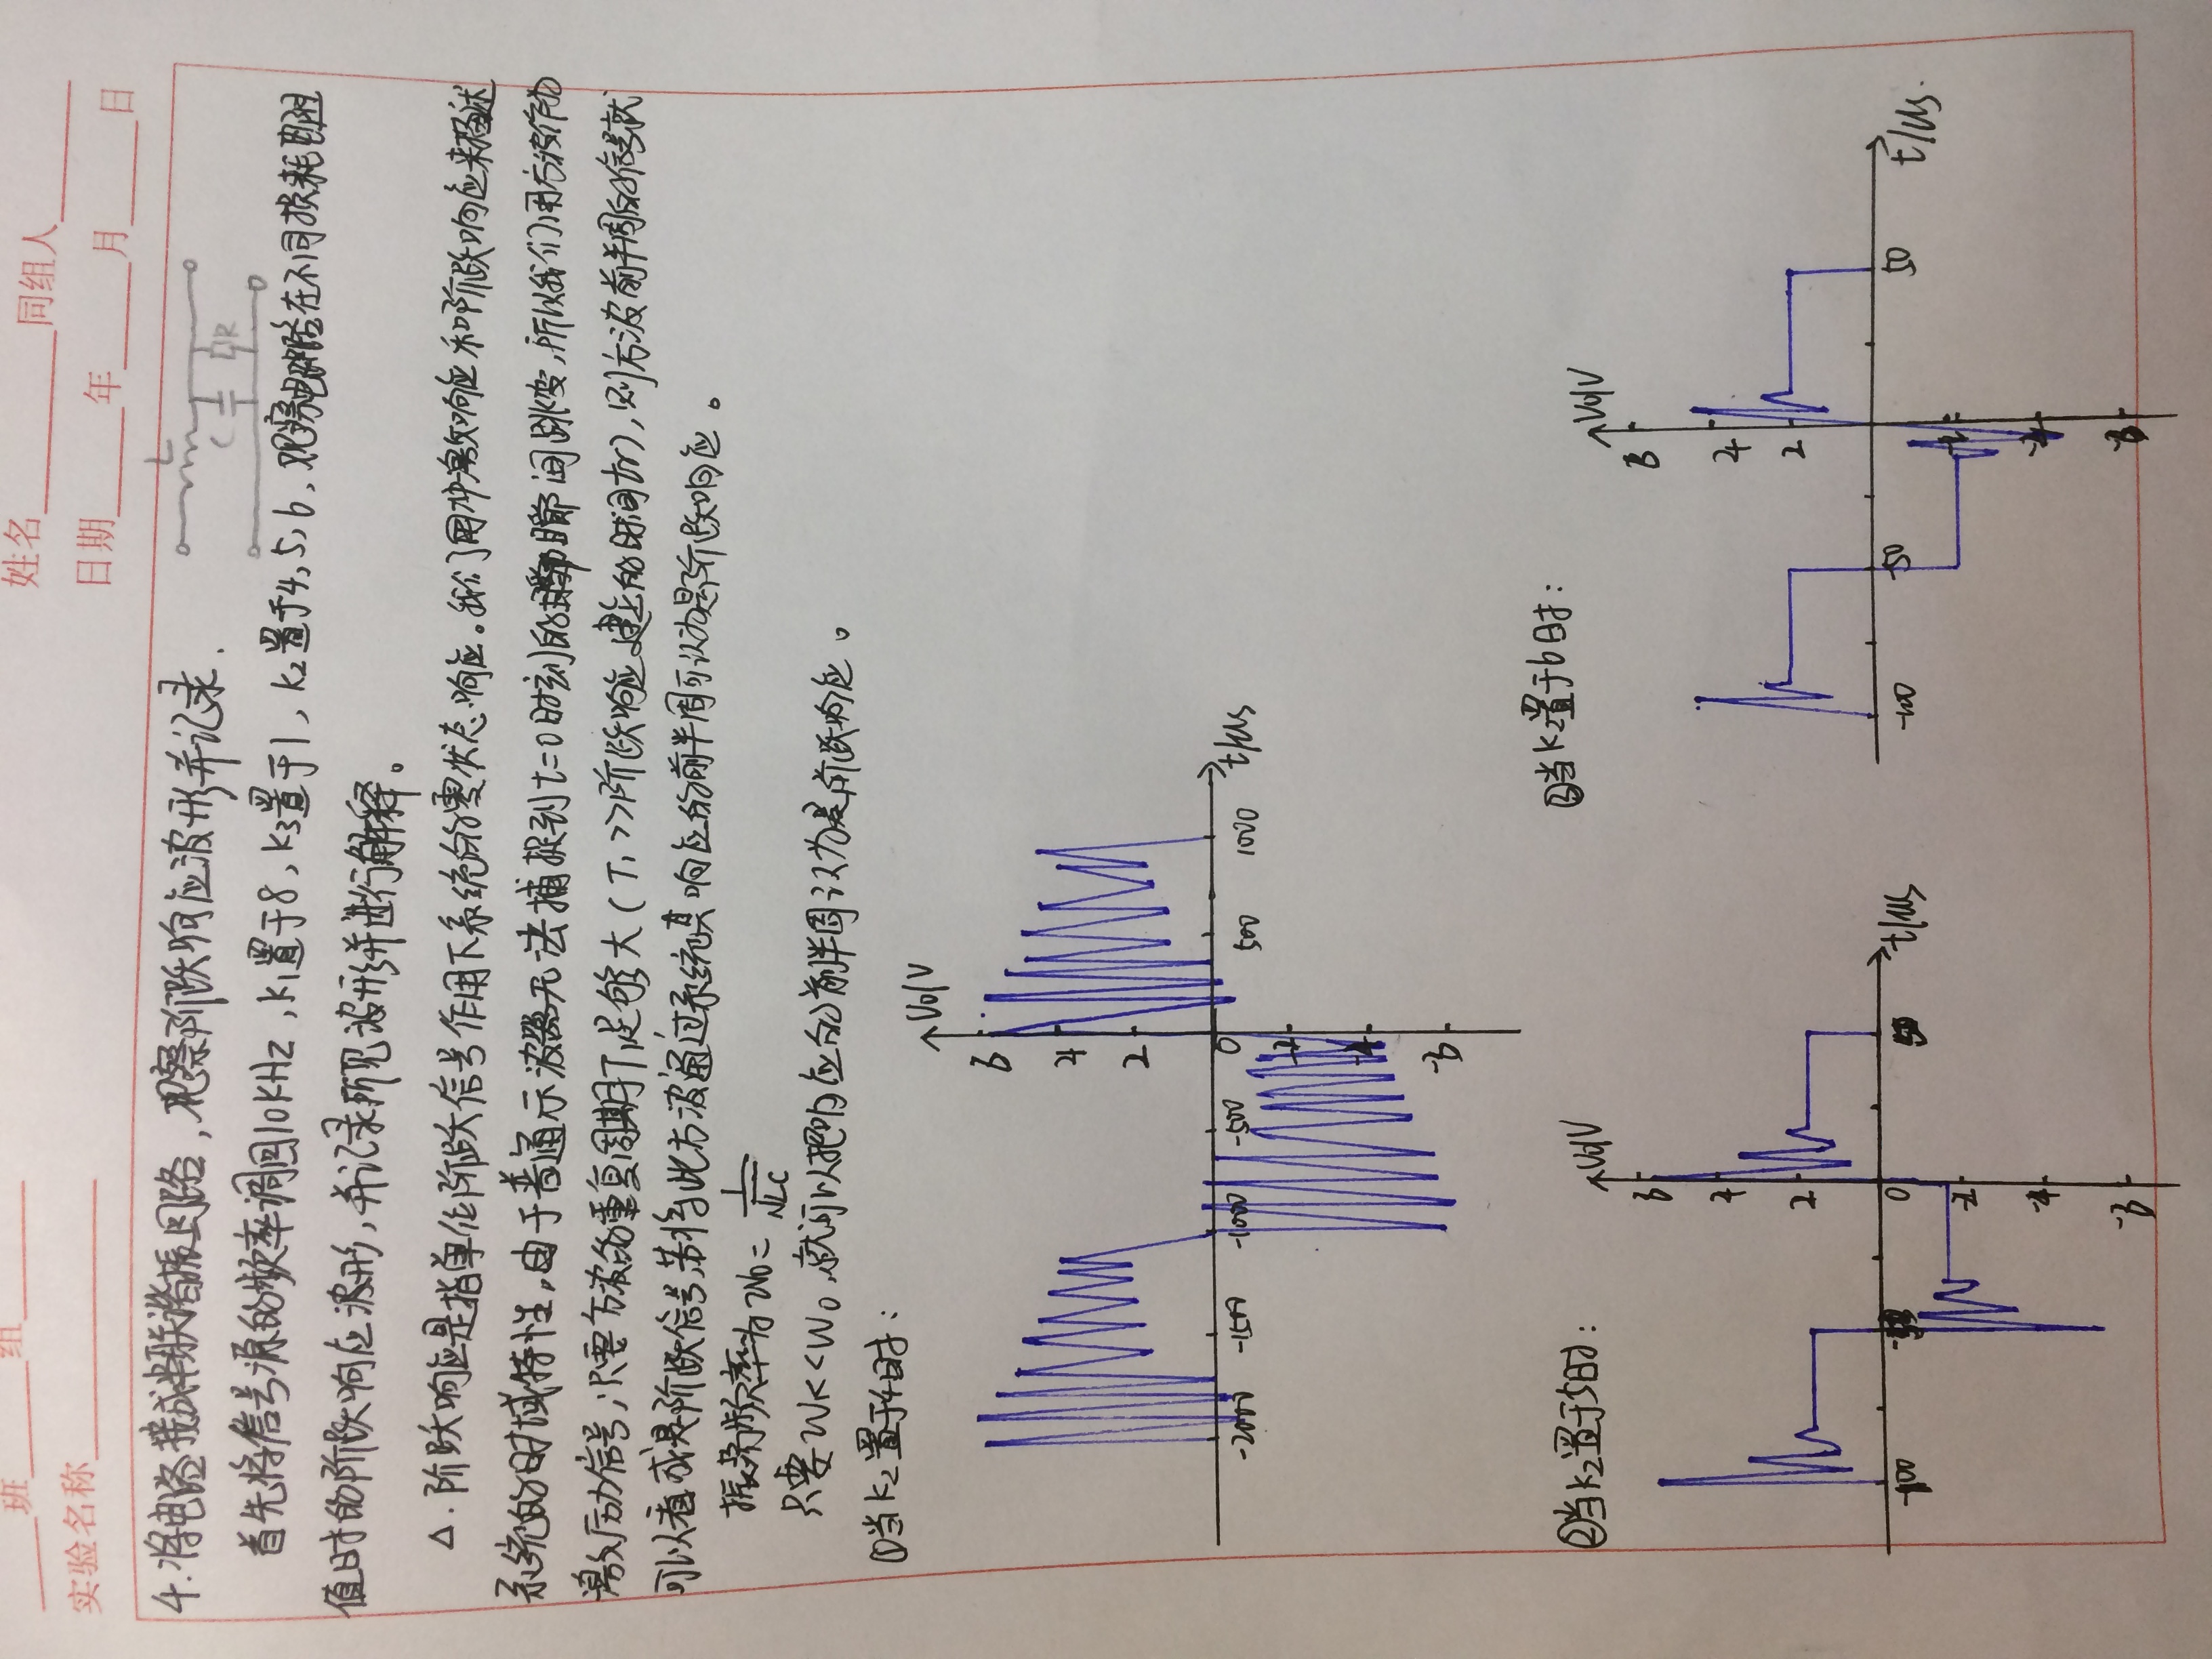 班 组
姓名 同组人
实验名称
日期 年 月 日
4.将电路接成串联谐振回路,观察阶跃响应波形并记录.
L
C R
首先将信号源的频率调回10KHz,K₁置于8,K₃置于1,K₂置于4,5,6,观察电路在不同损耗电阻
值时的阶跃响应波形,并记录所见波形并进行解释。
△.阶跃响应是指单位阶跃信号作用下系统的零状态响应。我们用冲激响应和阶跃响应来描述
系统的时域特性,由于普通示波器无法捕捉到t=0时刻的瞬间跳变,所以我们用方波作为
激励信号,只要方波的重复周期T₁足够大(T₁>>阶跃响应建立的时间tr),则方波前半周的信号就
可以看成是阶跃信号,若将此方波通过系统其响应的前半周可认为是阶跃响应。
振荡频率为W₀=1/√LC
只要W<<W₀,就可以把响应的前半周认为是阶跃响应。
①当K₂置于4时:
V₀/V
6
4
2
-2000 -1500 -1000 -500 0 500 1000 t/us
-2
-4
-6
②当K₂置于5时:
V₀/V
6
4
2
-100 -50 0 50 t/us
-2
-4
-6
③当K₂置于6时:
V₀/V
6
4
2
-100 -50 50 t/us.
-2
-4
-6